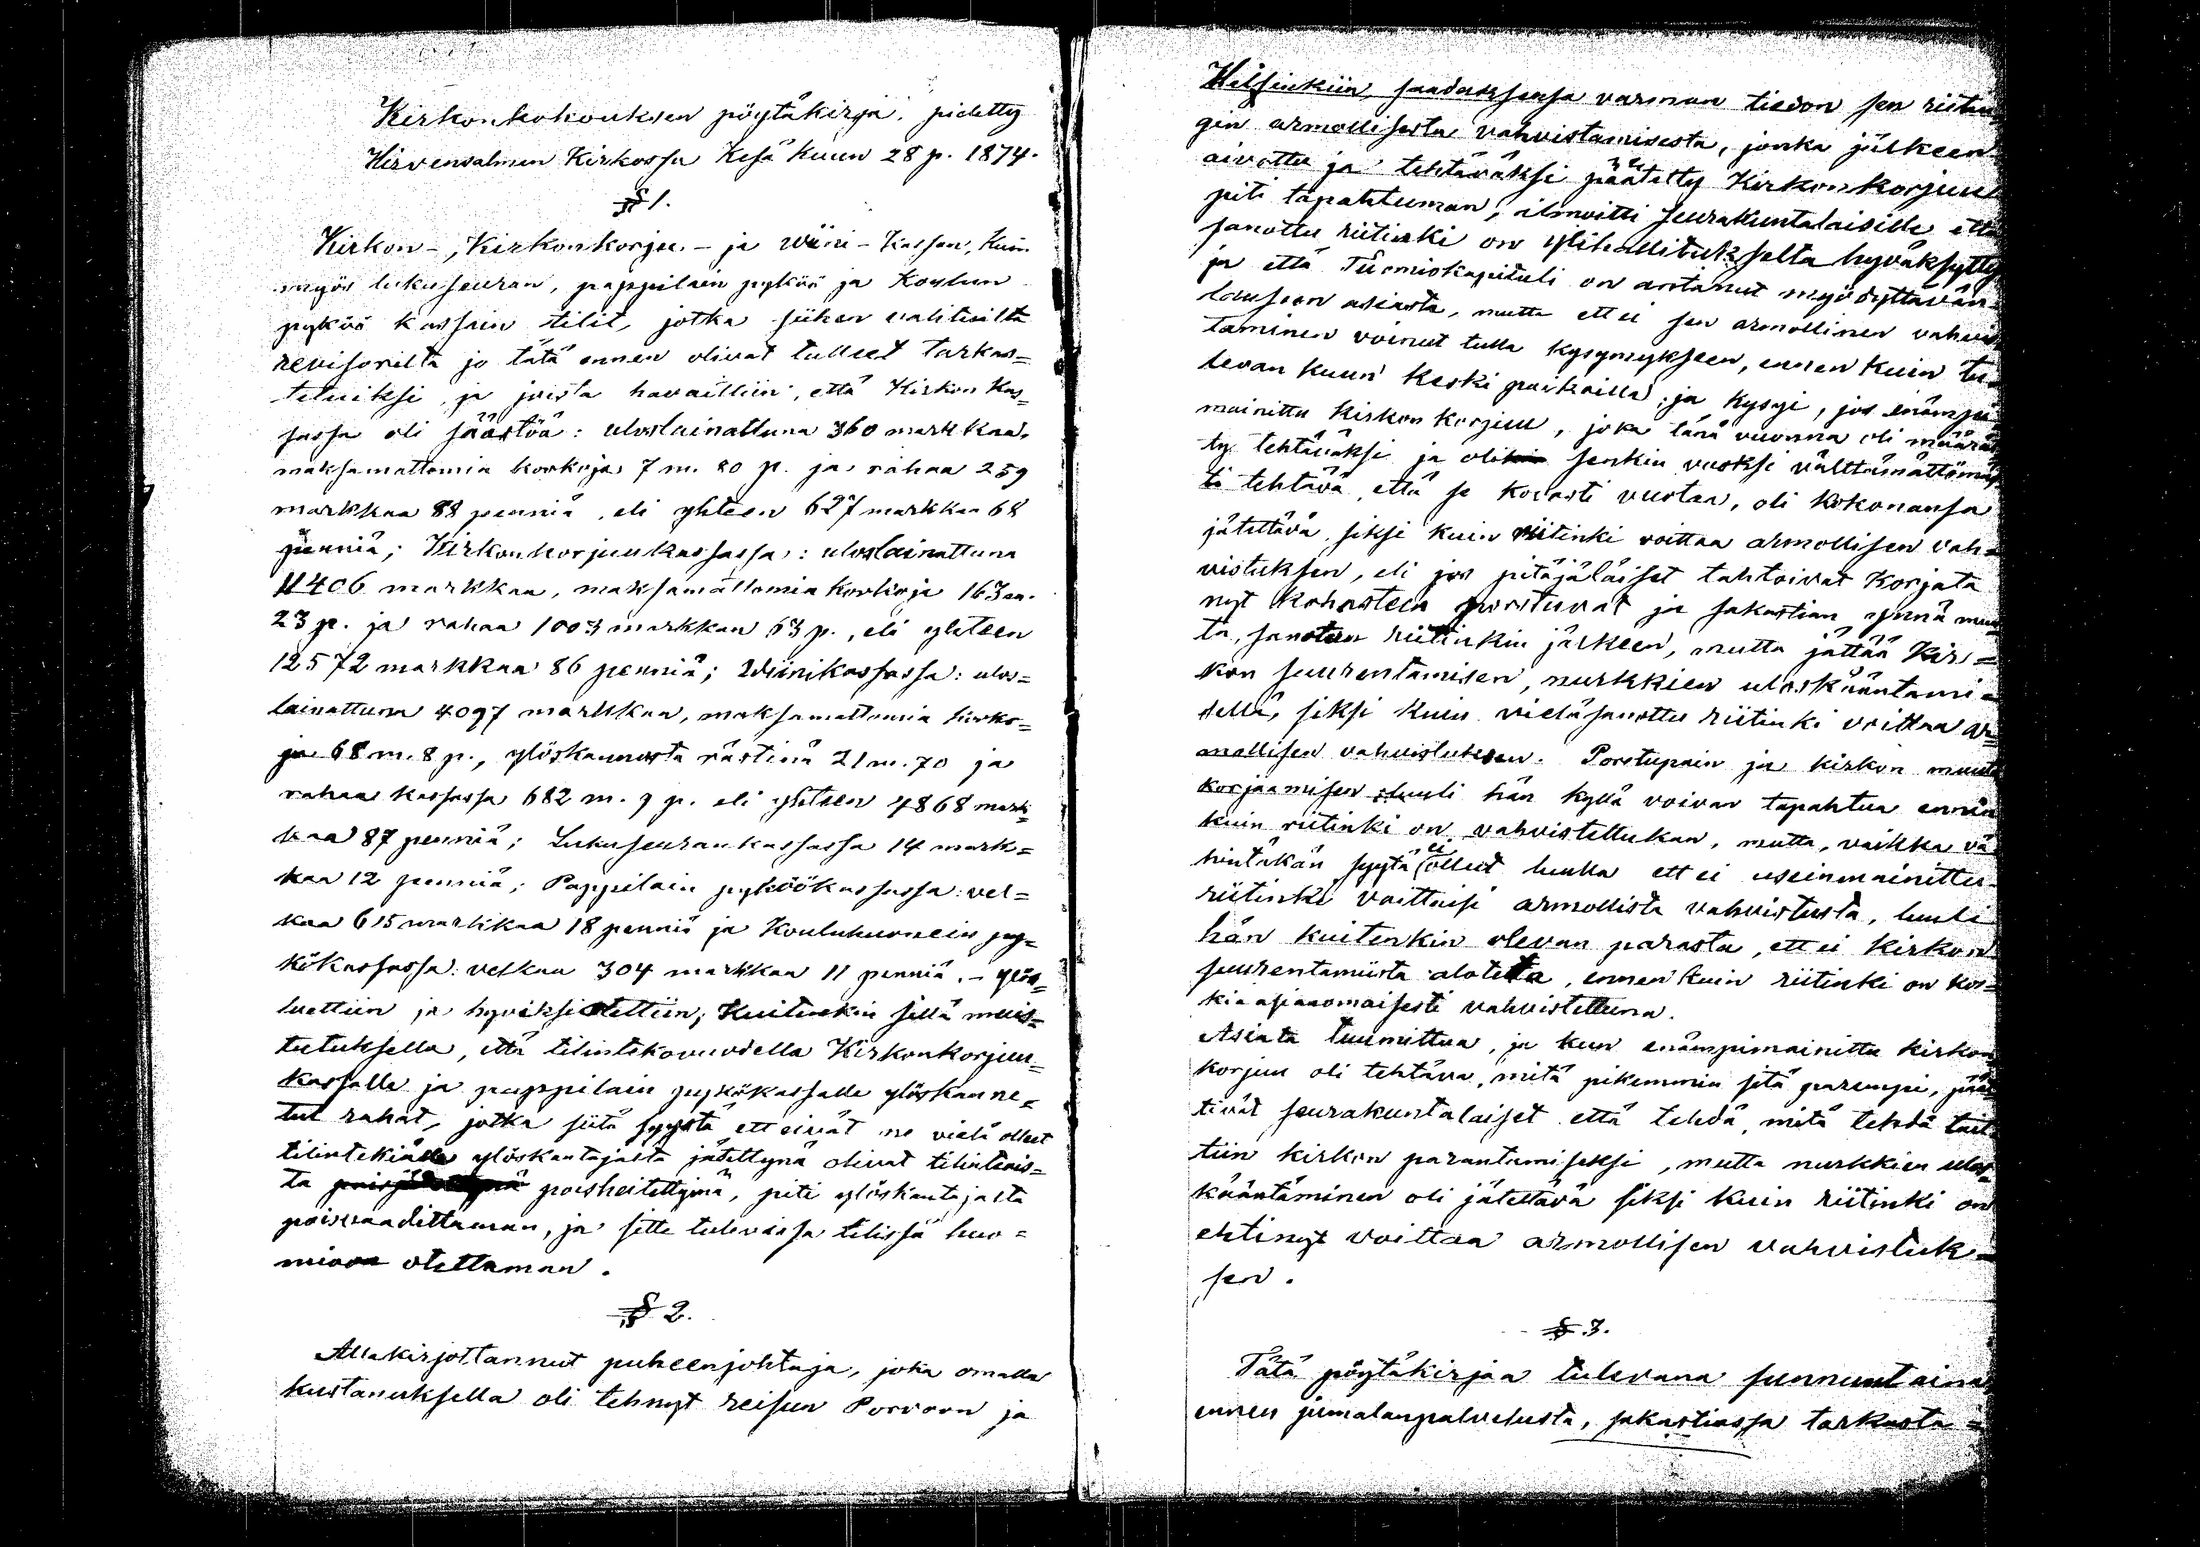 Kirkonkokouksen pöytäkirja, pidetty
Hirvensalmen Kirkossa Kesäkuun 28 p. 1874.
§ 1.
Kirkon-, Kirkonkorjuu- ja wiini-kassan, kuin
myös lukuseuran, pappilain pyköö ja Koulun
pyköö kassain tilit, jotka siihen valituilta
revisorilta jo tätä ennen olivat tulleet tarkas=
tetuiksi ja joista havaittiin, että Kirkon kas=
sassa oli säästöä: uloslainattuna 360 markkaa,
maksamattomia korkoja 7 m. 80 p. ja rahaa 259
markkaa 88 penniä, eli yhteen 627 markkaa 68
penniä; Kirkonkorjuukassassa: uloslainattuna
11406 markkaa, maksamattomia korkoja 163 m.
23 p. ja rahaa 1003 markkaa 63 p., eli yhteen
12572 markkaa 86 penniä; Wiinikassassa: ulos=
lainattuna 4097 markkaa, maksamattomia korko=
ja 68 m. 8 p., ylöskannosta rästinä 21 m. 70 ja
rahaa kassassa 682 m. 9 p. eli yhteen 4868 mark=
kaa 87 penniä; Lukuseurankassassa 14 mark=
kaa 12 penniä; Pappilain pyköökassassa: vel=
kaa 615 markkaa 18 penniä ja Kouluhuonein py=
kökassassa: velkaa 304 markkaa 11 penniä. - ylös=
luettiin ja hyväksi otettiin; Kuitenkin sillä muis=
tutuksella, että tilintekovuodella Kirkonkorjuu=
kassalle ja pappilain pykökassalle ylöskanne=
tut rahat, jotka siitä syystä ett eivät ne vielä olleet
tilintekiälle ylöskantajalta jätettynä olivat tilinteis=
ta poisheitettyinä, piti ylöskantajalta
poisvaadittaman, ja sitte tulevaissa tilissä huo=
mioon otettaman.
§ 2.
Allakirjottannut puheenjohtaja, joka omalla
kustanuksella oli tehnyt reisun Porvoon ja
Helsinkiin, saadaksensa varman tiedon sen riitin=
gin armollisesta vahvistamisesta, jonka jälkeen
aivottu ja tehtäväksi päätetty Kirkonkorjuu
piti tapahtuman, ilmoitti seurakuntalaisille että
sanottu riitinki on ylihallitukselta hyväksytty
ja että Tuomiokapituli on antanut myödyttävän
lauseon asiasta, mutta ett ei sen armollinen vahvis=
taminen voinut tulla kysymykseen, ennen kuin tu=
levan kuun keski paikoilla; ja kysyi, jos enämpi
mainittu kirkon korjuu, joka tänä vuonna oli määrät=
ty tehtäväksi ja oli senkin vuoksi välttämättömäs=
ti tehtävä, että se kovasti vuotaa, oli kokonansa
jätettävä siksi kuin riitinki voittaa armollisen vah=
vistuksen, eli jos pitäjäläiset tahtoivat korjata
nyt kohasteen porstuvat ja sakastian ynnä muu=
ta, sanotun riitinkin jälkeen, mutta jättää Kir=
kon suurentamisen, nurkkien uloskääntämi=
sellä, siksi kuin vielä sanottu riitinki voittaa ar=
mollisen vahvistuksen. Porstupain ja kirkon muuta
korjaamisen luuli hän kyllä voivan tapahtua ennen
kuin riitinki on vahvistettukan, mutta, vaikka vä=
hintäkän syytä ei olleet luulla ett ei useinmainittu
riitinki voittaisi armollista vahvistusta, luuli
hän kuitenkin olevan parasta, ett ei kirkon
suurentamista aloteta, ennen kuin riitinki on kos=
kia asianomaisesti vahvistettuna.
Asiata tuumittua, ja kun enämpimainittu kirkon
korjuu oli tehtävä, mitä pikemmin sitä parempi, päät=
tivät seurakuntalaiset että tehdä, mitä tehdä tait=
tiin kirkon parantamiseksi, mutta nurkkien ulos=
kääntäminen oli jätettävä siksi kuin riitinki on
ehtinyt voittaa armollisen vahvistuk=
sen.
§ 3.
Tätä pöytäkirjaa tulevana sunnuntaina
ennen jumalanpalvelusta, sakastiassa tarkasta=